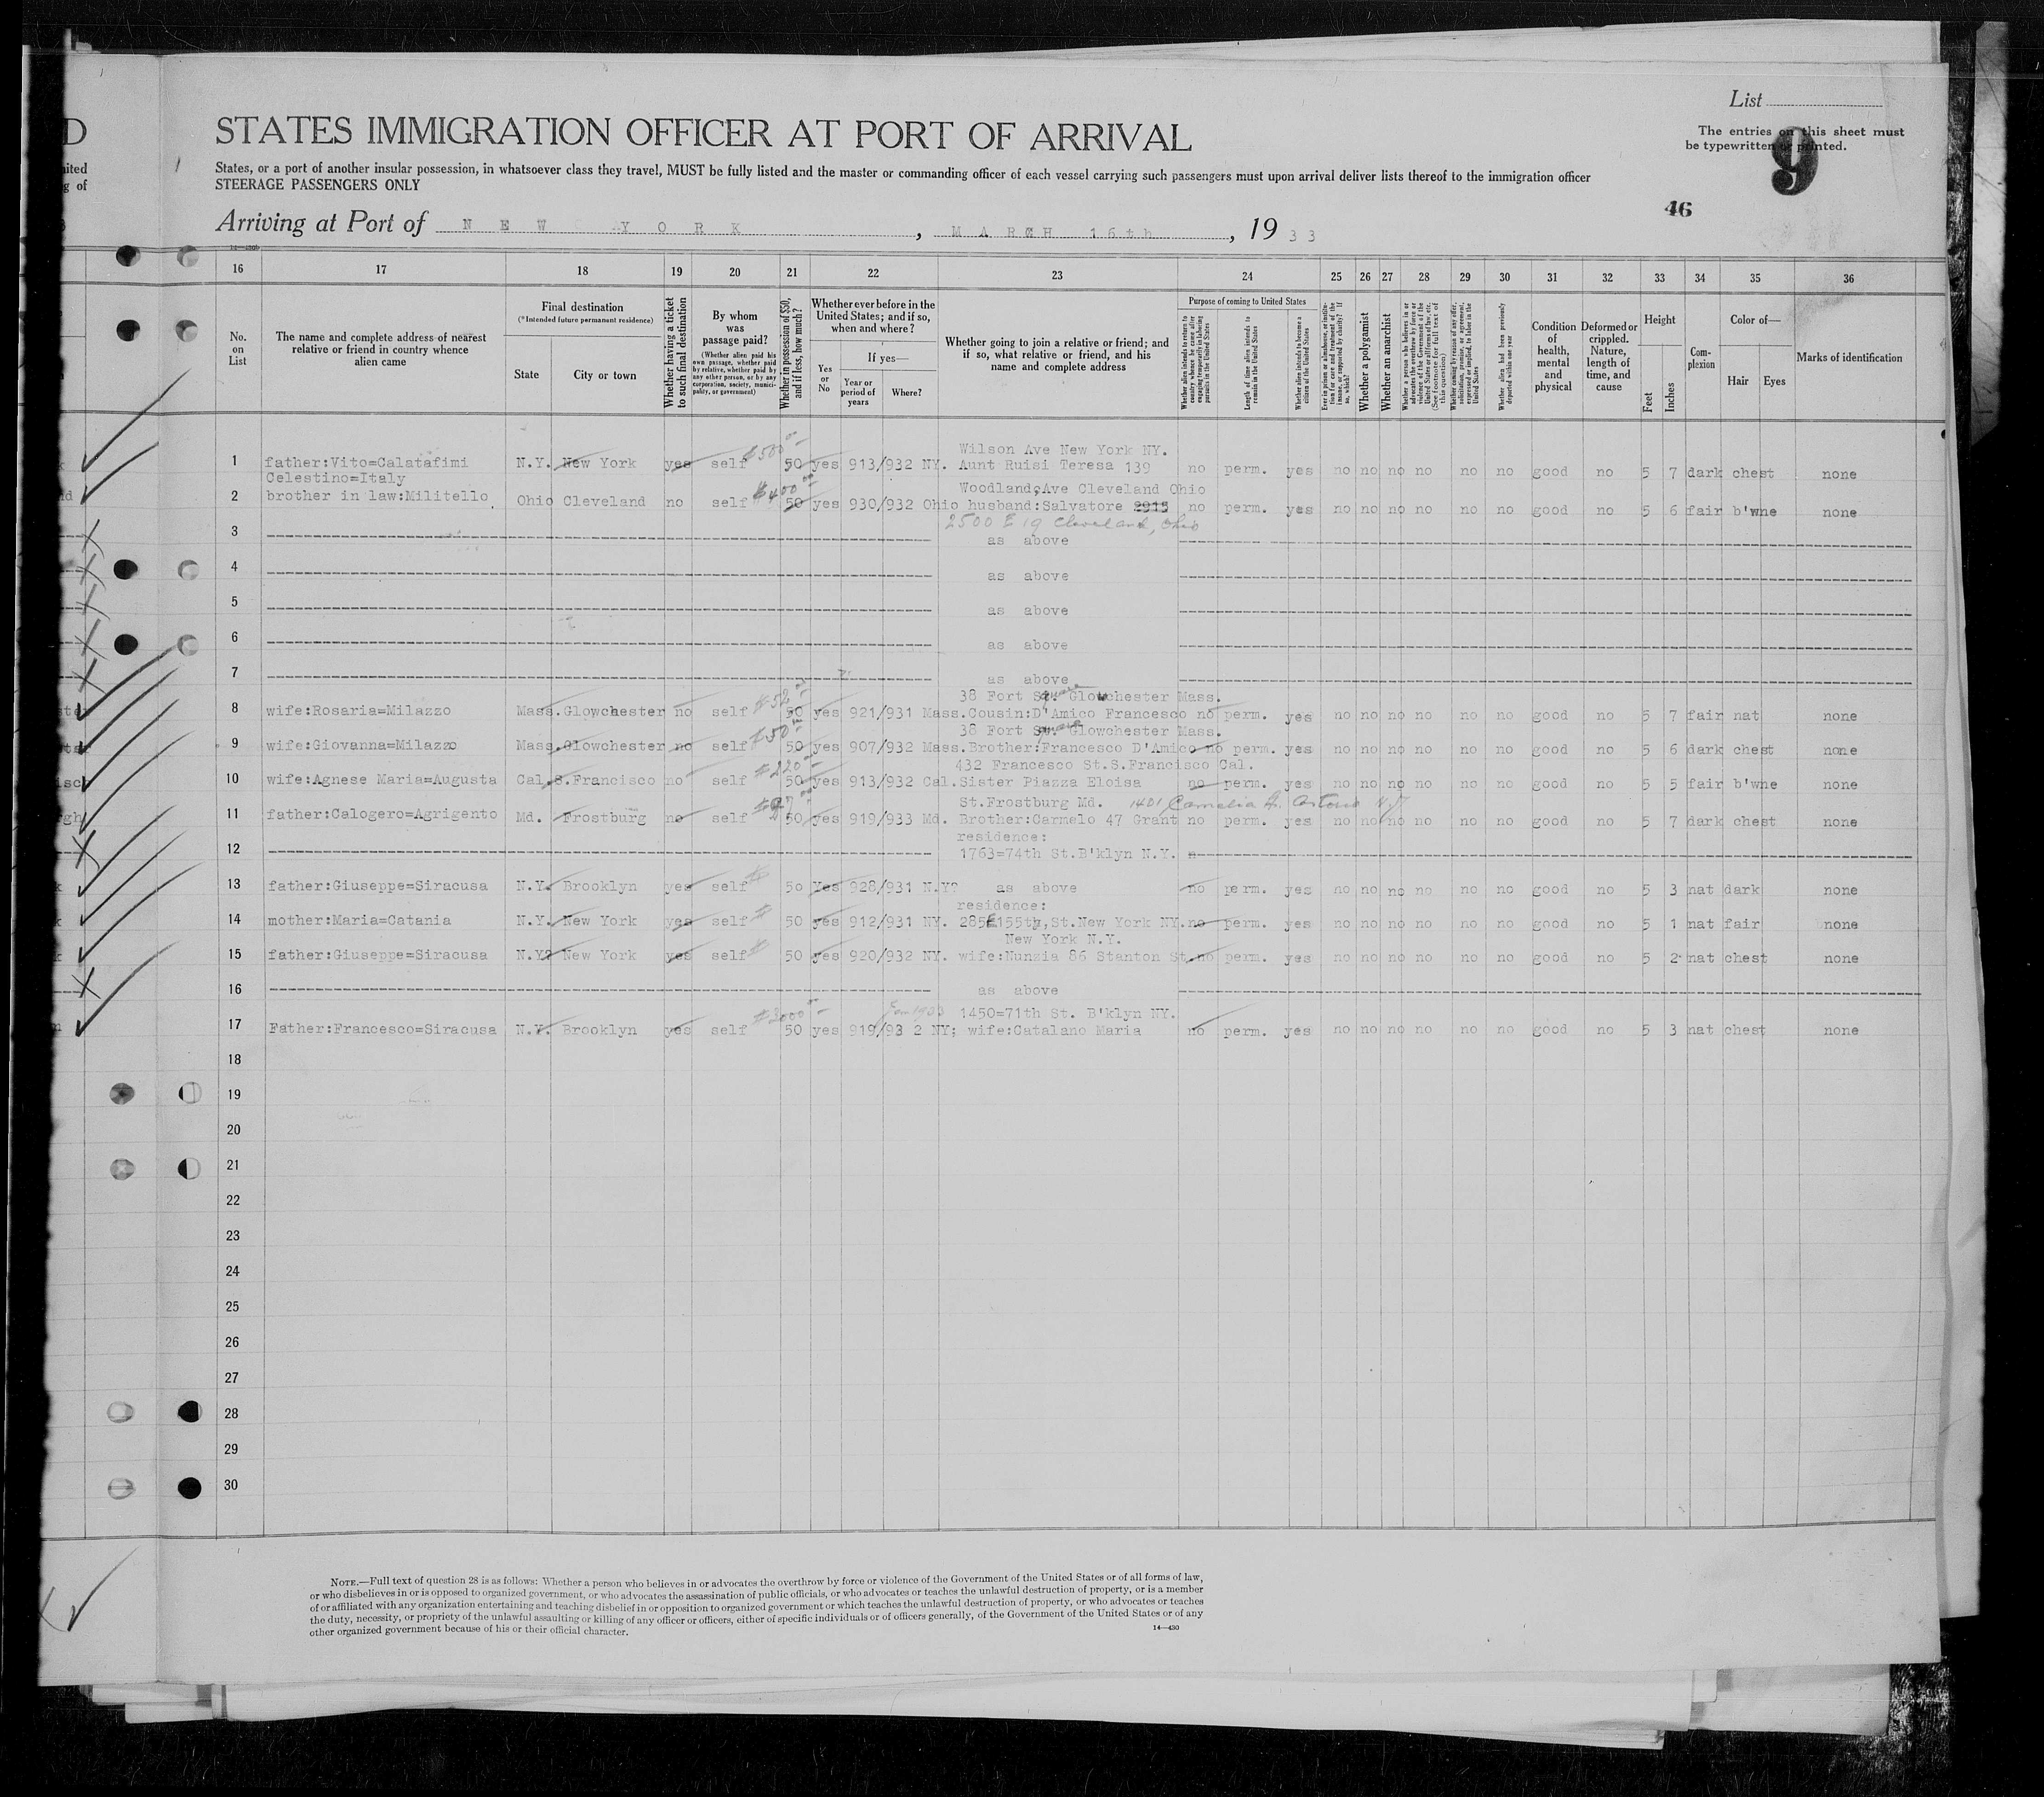 List
The entries on this sheet must
be typewritten or printed.
9
46
D
STATES IMMIGRATION OFFICER AT PORT OF ARRIVAL
States, or a port of another insular possession, in whatsoever class they travel, MUST be fully listed and the master or commanding officer of each vessel carrying such passengers must upon arrival deliver lists thereof to the immigration officer
STEERAGE PASSENGERS ONLY
Arriving at Port of NEW YORK, MARCH 16th, 1933
16 17 18 19 20 21 22 23 24 25 26 27 28 29 30 31 32 33 34 35 36
No. on List
The name and complete address of nearest relative or friend in country whence alien came
Final destination
(*Intended future permanent residence)
State
City or town
Whether having a ticket to such final destination
By whom was passage paid?
(Whether alien paid his own passage, whether paid by relative, whether paid by any other person, or by any corporation, society, municipality, or government)
Whether in possession of $50, and if less, how much?
Whether ever before in the United States; and if so, when and where?
Yes or No
If yes—
Year or period of years
Where?
Whether going to join a relative or friend; and if so, what relative or friend, and his name and complete address
Purpose of coming to United States
Length of time alien intends to remain in the United States
Whether alien intends to become a citizen of the United States
Whether a polygamist
Whether an anarchist
Whether alien had been previously deported within one year
Condition of health, mental and physical
Deformed or crippled. Nature, length of time, and cause
Height
Feet
Inches
Complexion
Color of—
Hair
Eyes
Marks of identification
Wilson Ave New York NY.
1 father:Vito=Calatafimi N.Y. New York yes self $500 50 yes 913/932 NY. Aunt Ruisi Teresa 139 no perm. yes no no no no no no good no 5 7 dark chest none
Celestino=Italy Woodland,Ave Cleveland Ohio
2 brother in law:Militello Ohio Cleveland no self $400 50 yes 930/932 Ohio husband:Salvatore 2915 no perm. yes no no no no no no good no 5 6 fair b'wne none
2500 E 19 Cleveland, Ohio
3 as above
4 as above
5 as above
6 as above
7 as above
38 Fort St. Square Glowchester Mass.
8 wife:Rosaria=Milazzo Mass. Glowchester no self $52 50 yes 921/931 Mass. Cousin:D'Amico Francesco no perm. yes no no no no no no good no 5 7 fair nat none
38 Fort St. Square Glowchester Mass.
9 wife:Giovanna=Milazzo Mass. Glowchester no self $50 50 yes 907/932 Mass. Brother:Francesco D'Amico no perm. yes no no no no no no good no 5 6 dark chest none
432 Francesco St.S.Francisco Cal.
10 wife:Agnese Maria=Augusta Cal. S.Francisco no self $220 50 yes 913/932 Cal. Sister Piazza Eloisa no perm. yes no no no no no no good no 5 5 fair b'wne none
St.Frostburg Md. 1401 Camelia
11 father:Calogero=Agrigento Md. Frostburg no self 50 yes 919/933 Md. Brother:Carmelo 47 Grant no perm. yes no no no no no no good no 5 7 dark chest none
residence:
12 1763=74th St.B'klyn N.Y.
13 father:Giuseppe=Siracusa N.Y. Brooklyn yes self 50 Yes 928/931 N.Y? as above no perm. yes no no no no no no good no 5 3 nat dark none
residence:
14 mother:Maria=Catania N.Y. New York yes self 50 yes 912/931 NY. 285E155th,St.New York NY. no perm. yes no no no no no no good no 5 1 nat fair none
New York N.Y.
15 father:Giuseppe=Siracusa N.Y? New York yes self 50 yes 920/932 NY. wife:Nunzia 86 Stanton St. no perm. yes no no no no no no good no 5 2 nat chest none
16 as above
Jan 1933 1450=71th St. B'klyn NY.
17 Father:Francesco=Siracusa N.Y. Brooklyn yes self $3000 50 yes 919/93 2 NY; wife:Catalano Maria no perm. yes no no no no no no good no 5 3 nat chest none
18
19
20
21
22
23
24
25
26
27
28
29
30
NOTE.—Full text of question 28 is as follows: Whether a person who believes in or advocates the overthrow by force or violence of the Government of the United States or of all forms of law,
or who disbelieves in or is opposed to organized government, or who advocates the assassination of public officials, or who advocates or teaches the unlawful destruction of property, or is a member
of or affiliated with any organization entertaining and teaching disbelief in or opposition to organized government or which teaches the unlawful destruction of property, or who advocates or teaches
the duty, necessity, or propriety of the unlawful assaulting or killing of any officer or officers, either of specific individuals or of officers generally, of the Government of the United States or of any
other organized government because of his or their official character.
14—430